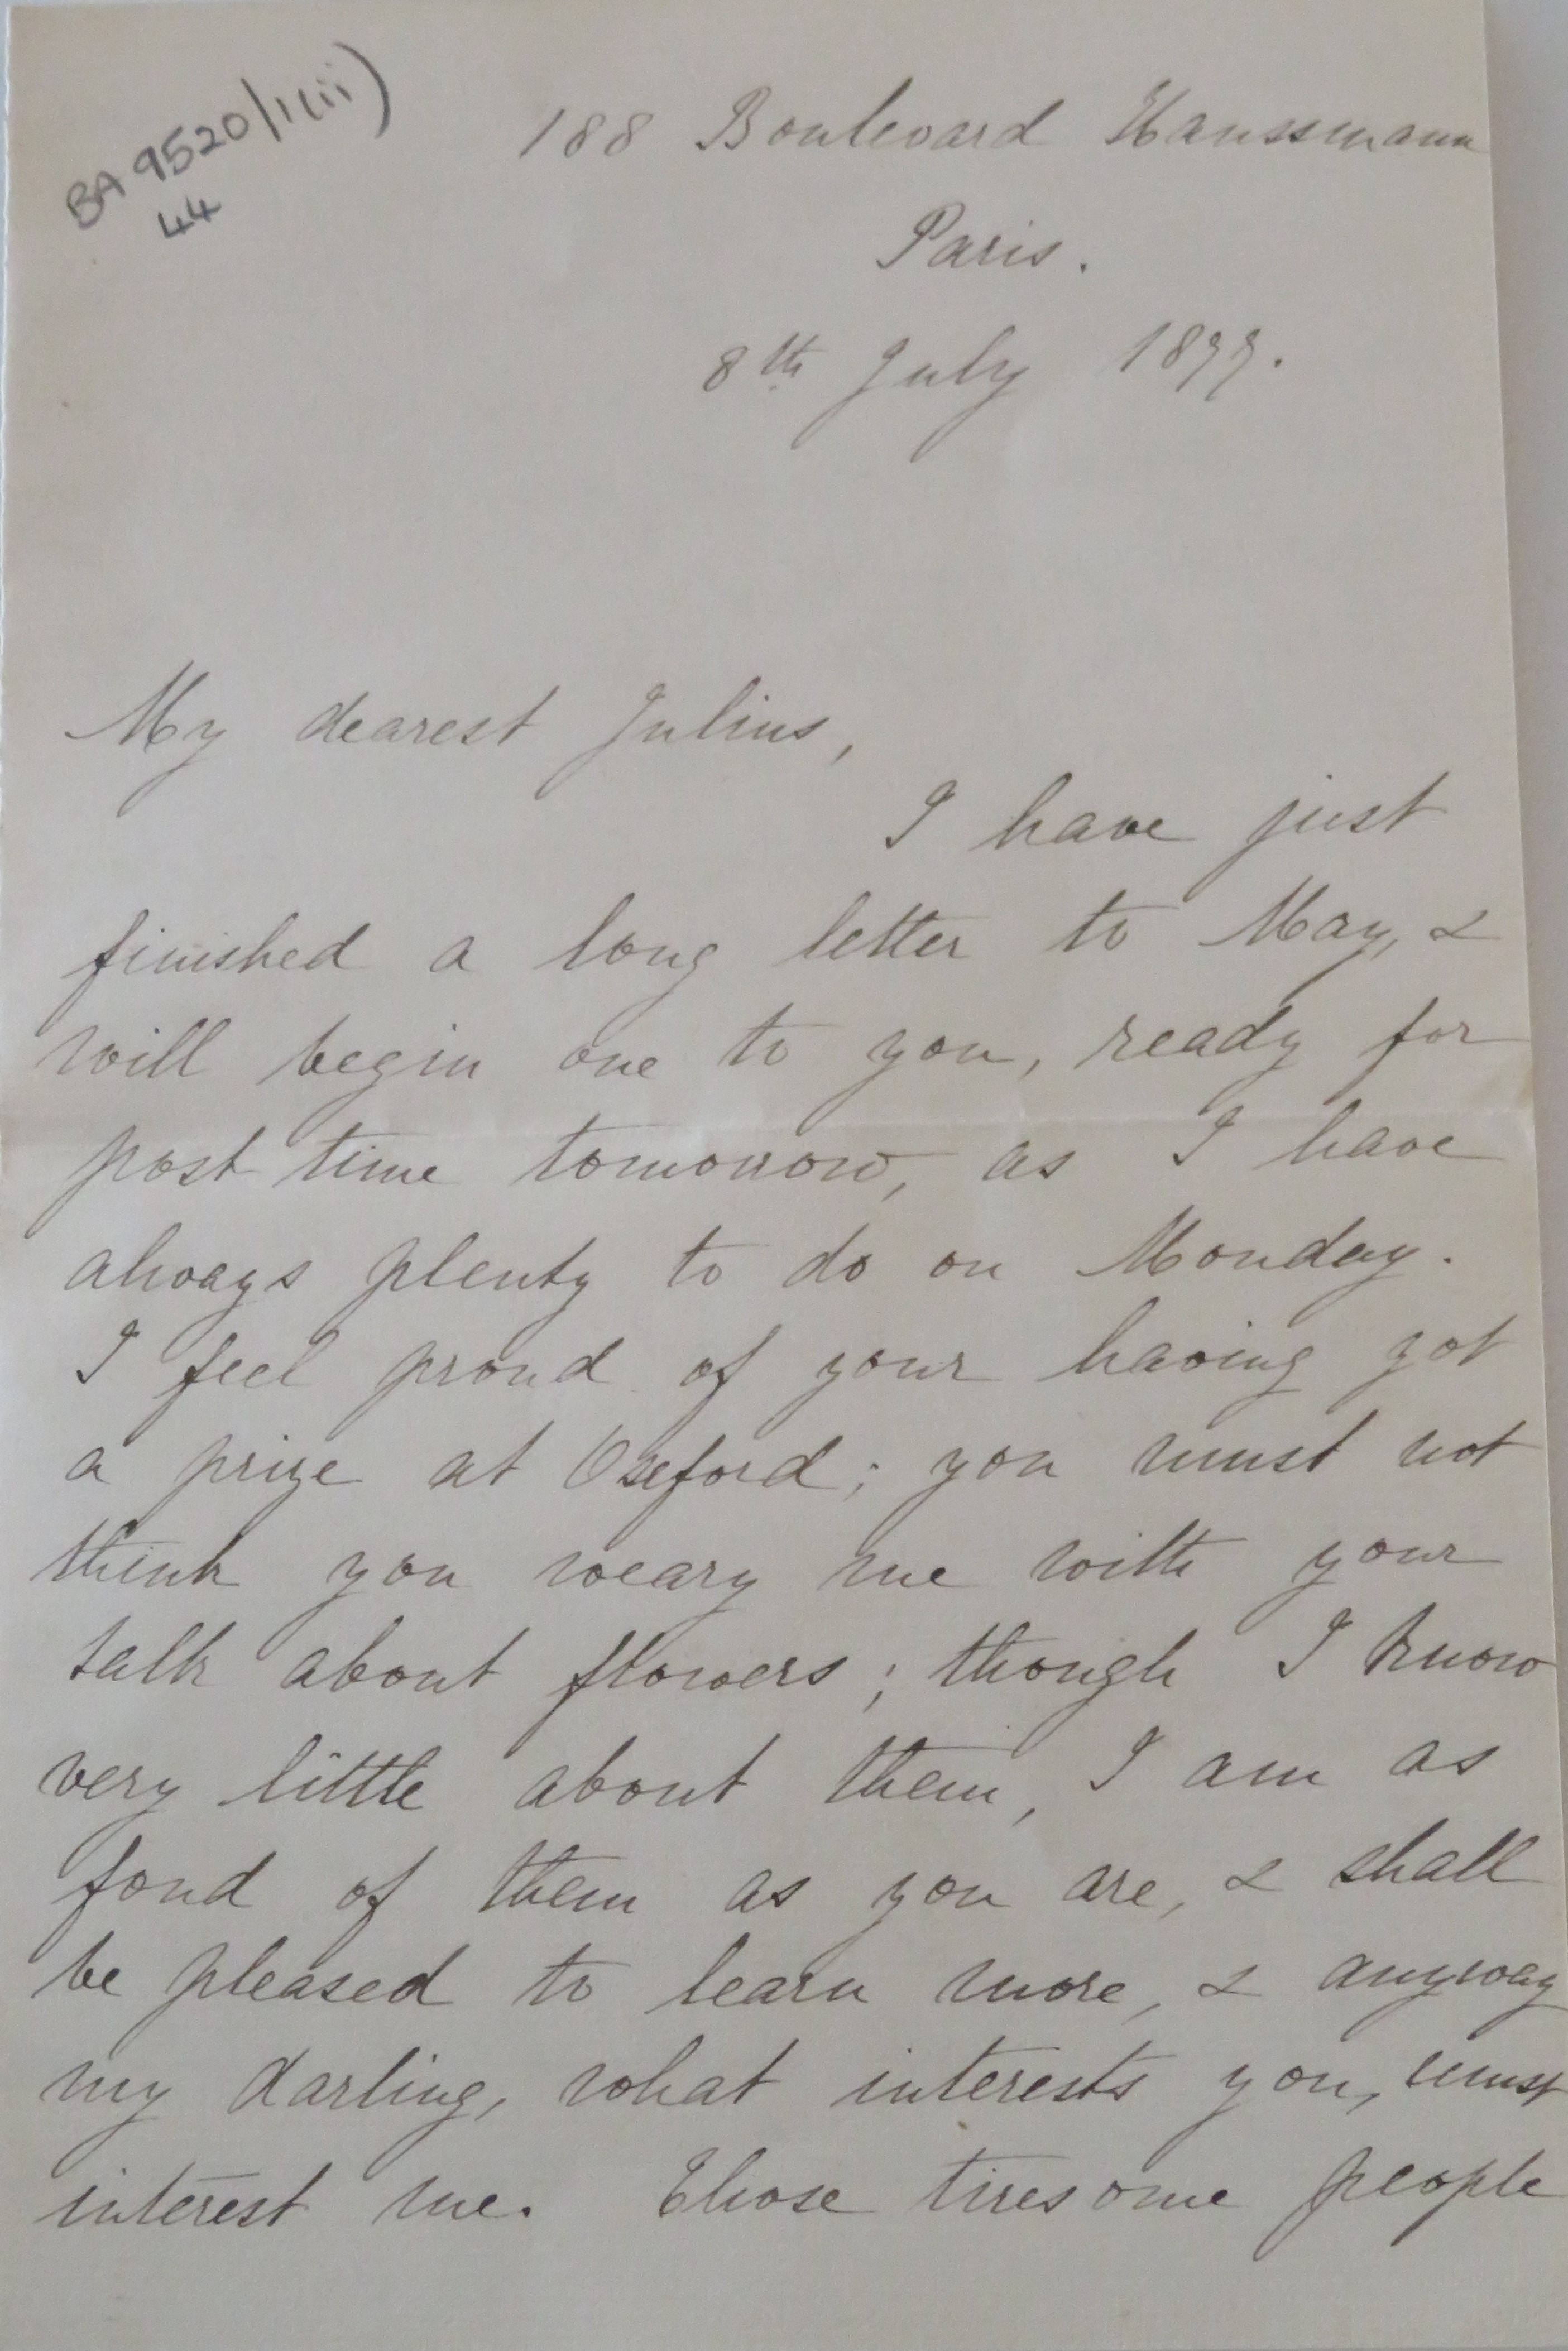 BA 9520/1(iii)
44
188 Boulevard Haussmann
Paris.
8th July 1877.
My dearest Julius,
I have just
finished a long letter to May, &
will begin one to you, ready for
post time tomorrow, as I have
always plenty to do on Monday.
I feel proud of your having got
a prize at Oxford; you must not
think you weary me with your
talk about flowers; though I know
very little about them, I am as
fond of them as you are, & shall
be pleased to learn more, & anyway
my darling, what interests you, must
interest me. Those tiresome people